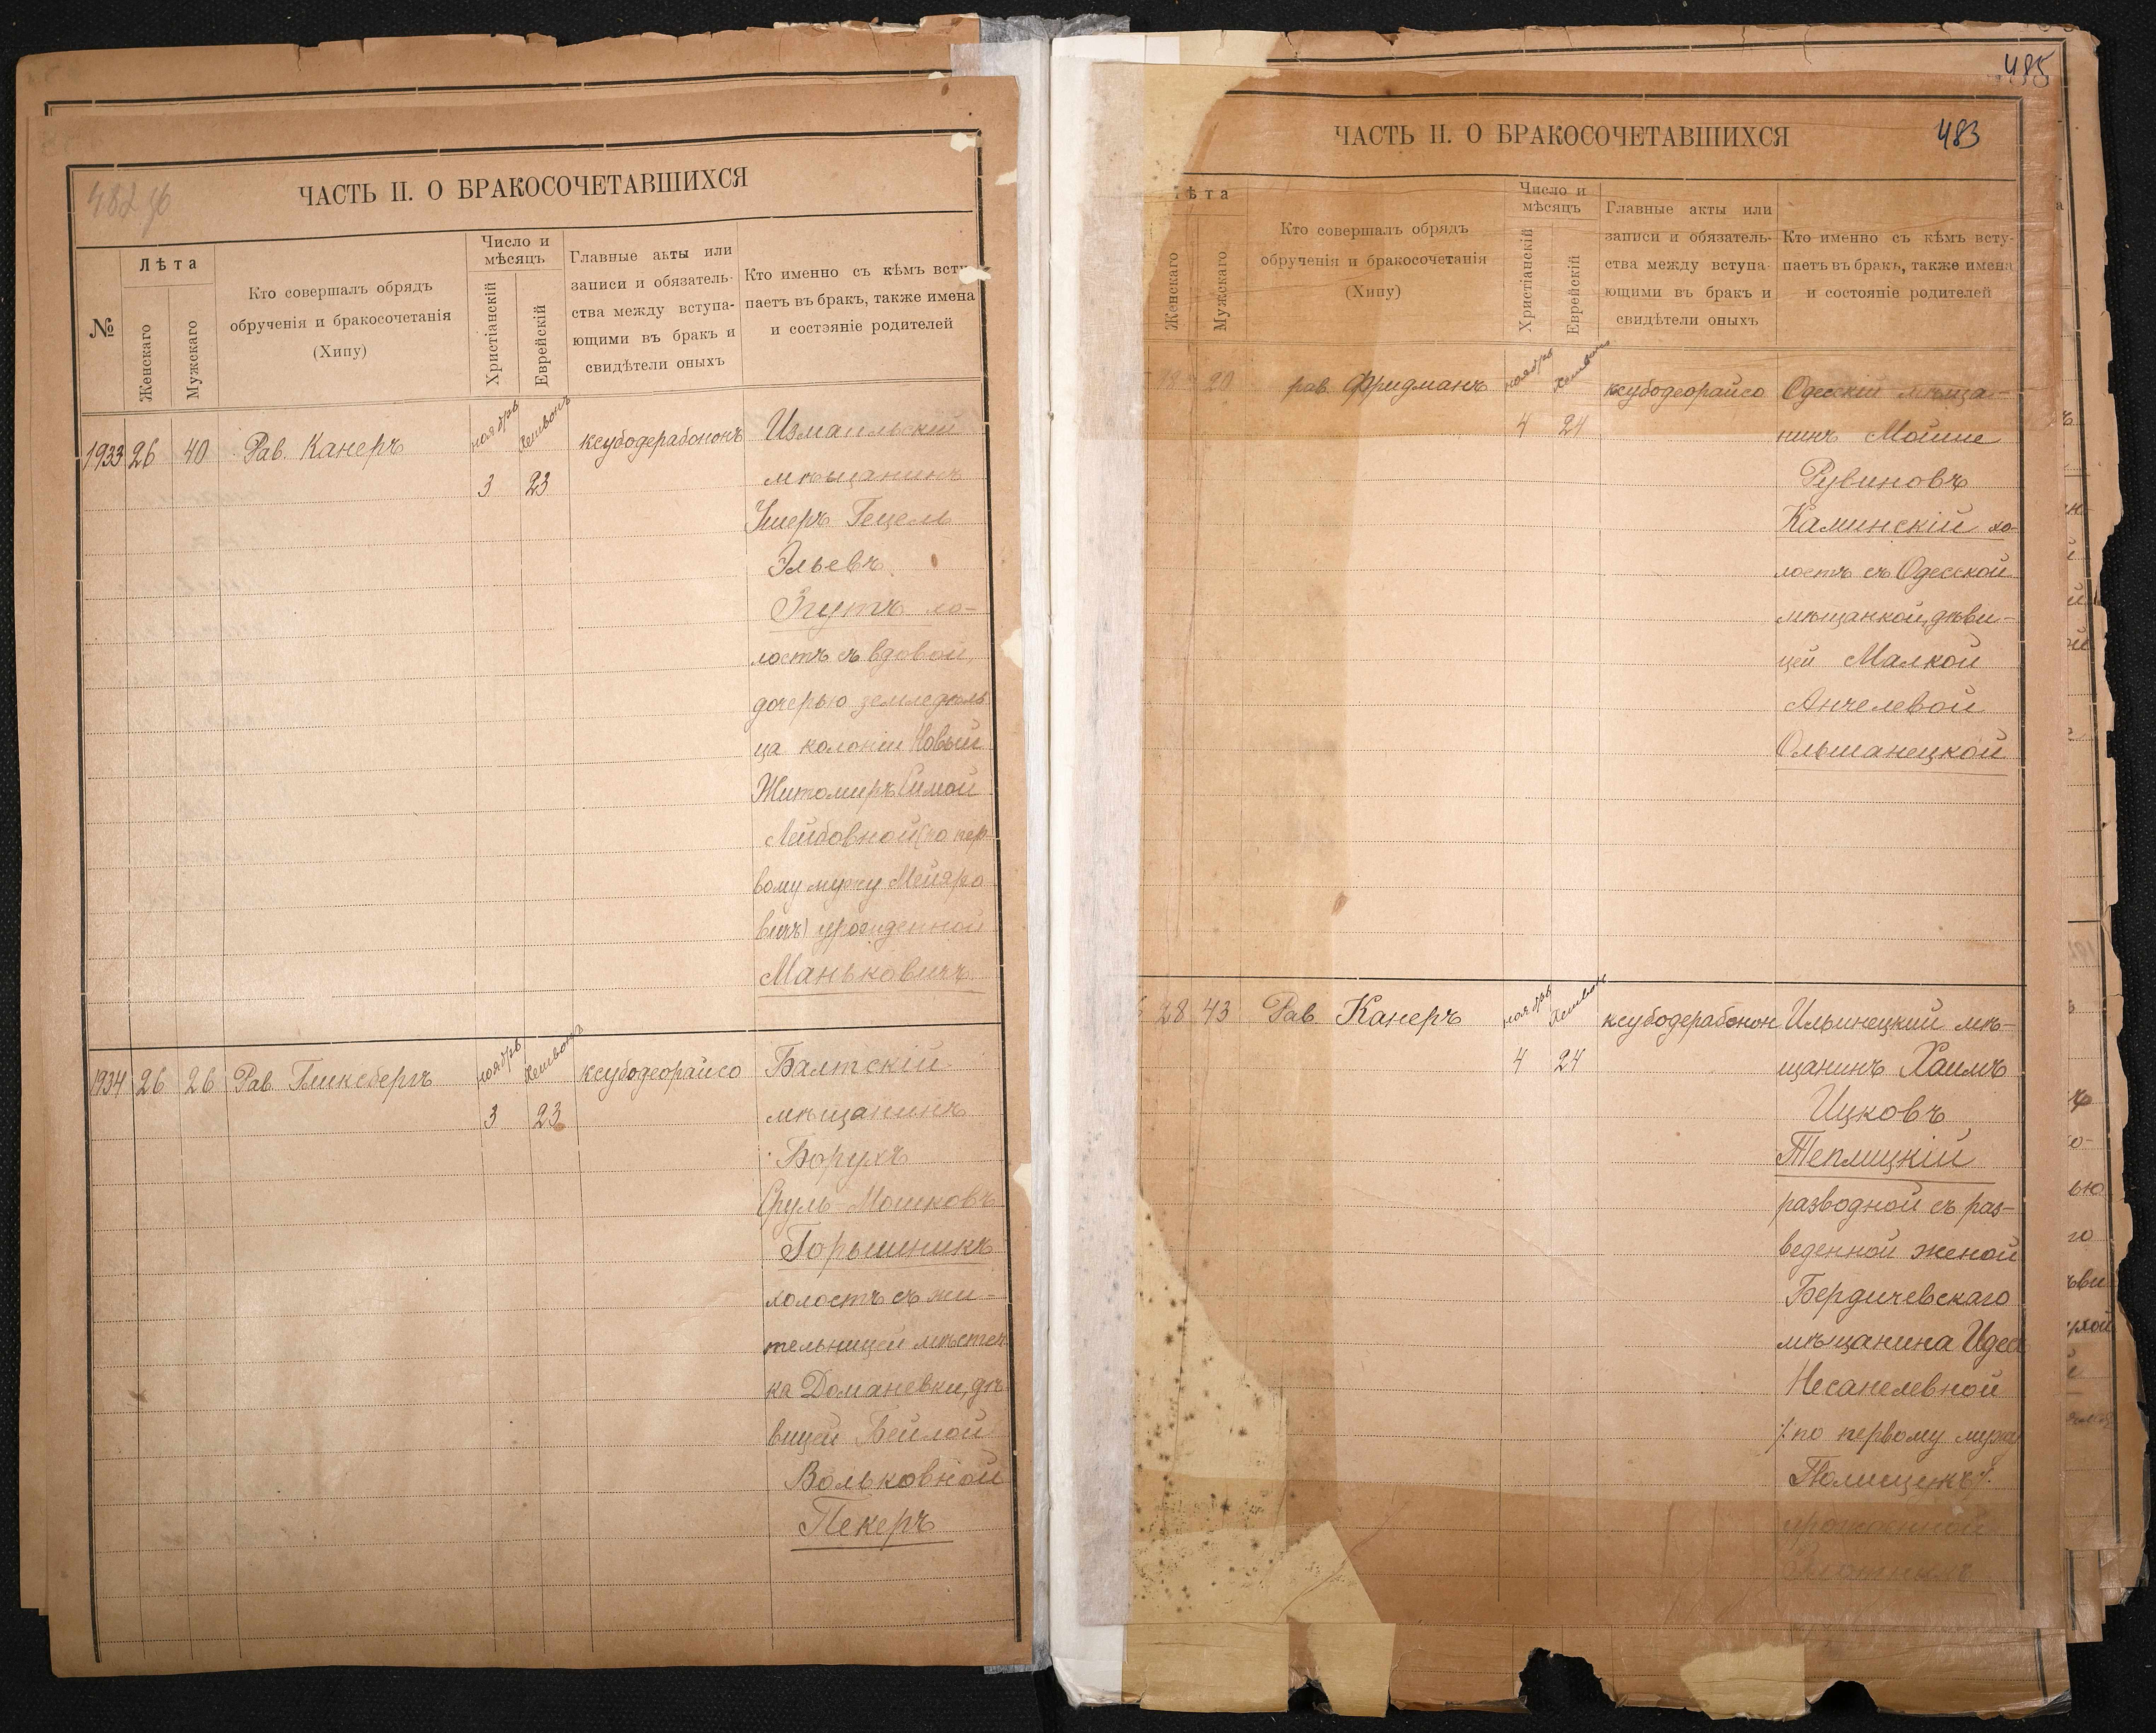 482 об
ЧАСТЬ II. О БРАКОСОЧЕТАВШИХСЯ
№
Лѣта
Женскаго
Мужскаго
Кто совершалъ обрядъ
обрученія и бракосочетанія
(Хипу)
Число и
мѣсяцъ
Христіанскій
Еврейскій
Главные акты или
записи и обязатель-
ства между вступа-
ющими въ бракъ и
свидѣтели оныхъ
Кто именно съ кѣмъ всту-
паетъ въ бракъ, также имена
и состояніе родителей
1933 26 40 Рав. Канеръ ноябрь 3 Хешвонъ 23 ксубодерабононъ
Измаильскій
мѣщанинъ
Ушеръ Гецель
Эльевъ
Згутъ хо-
лостъ съ вдовой,
дочерью земледѣль
ца колоніи Новый
Житомиръ Симой
Лейбовной (по пер-
вому мужу Мейеро
вичъ) урожденной
Маньковичъ
1934 26 26 Рав. Гликсбергъ ноябрь 3 Хешвонъ 23 ксубодеорайсо
Балтскій
мѣщанинъ
Борухъ
Сруль Мошковъ
Горышникъ
холостъ съ жи-
тельницей мѣстеч
ка Доманевки, дѣ
вицей Бейлой
Вольковной
Пекеръ
485
483
ЧАСТЬ II. О БРАКОСОЧЕТАВШИХСЯ
ѣта
Женскаго
Мужскаго
Кто совершалъ обрядъ
обрученія и бракосочетанія
(Хипу)
Число и
мѣсяцъ
Христіанскій
Еврейскій
Главные акты или
записи и обязатель-
ства между вступа-
ющими въ бракъ и
свидѣтели оныхъ
Кто именно съ кѣмъ всту-
паетъ въ бракъ, также имена
и состояніе родителей
18 20 рав. Фридманъ ноябрь 4 Хешвонъ 24 ксубодеорайсо
Одесскій мѣща-
нинъ Мойше
Рувиновъ
Каминскій хо-
лостъ съ Одесской
мѣщанкой, дѣви-
цей Малкой
Анчелевой
Ольшанецкой
28 43 Рав. Канеръ ноябрь 4 Хешвонъ 24 ксубодерабонон
Ильинецкий мѣ-
щанинъ Хаимъ
Ицковъ
Теплицкій
разводной съ раз-
веденной женой
Бердичевскаго
мѣщанина Идес
Несанелевной
/: по первому мужу
Полищукъ :/
урожденной